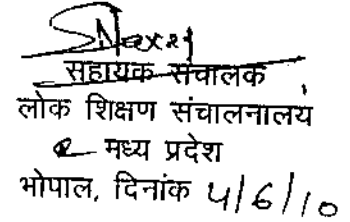 सहायक संचालक
लोक शिक्षण संचालनालय
मध्य प्रदेश
भोपाल, दिनांक 4/6/10